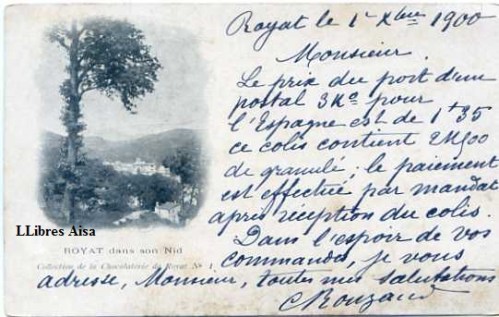 Royat le 1er Xbre 1900
Monsieur
Le prix du port d'un
postal 3Ko pour
l'Espagne est de 1f 35
ce colis contient 2K500
de granulé ; le paiement
est effectué par mandat
après réception du colis.
Dans l'espoir de vos
commandes, je vous
adresse, Monsieur, toutes mes salutations
C Rouzaud
LLibres Aisa
ROYAT dans son Nid
Collection de la Chocolaterie de Royat No 1